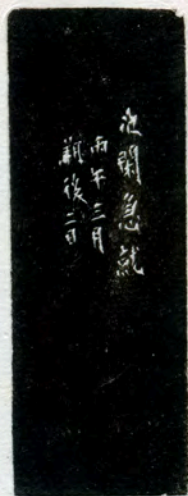 閑急就
丙午三月
禊後二日